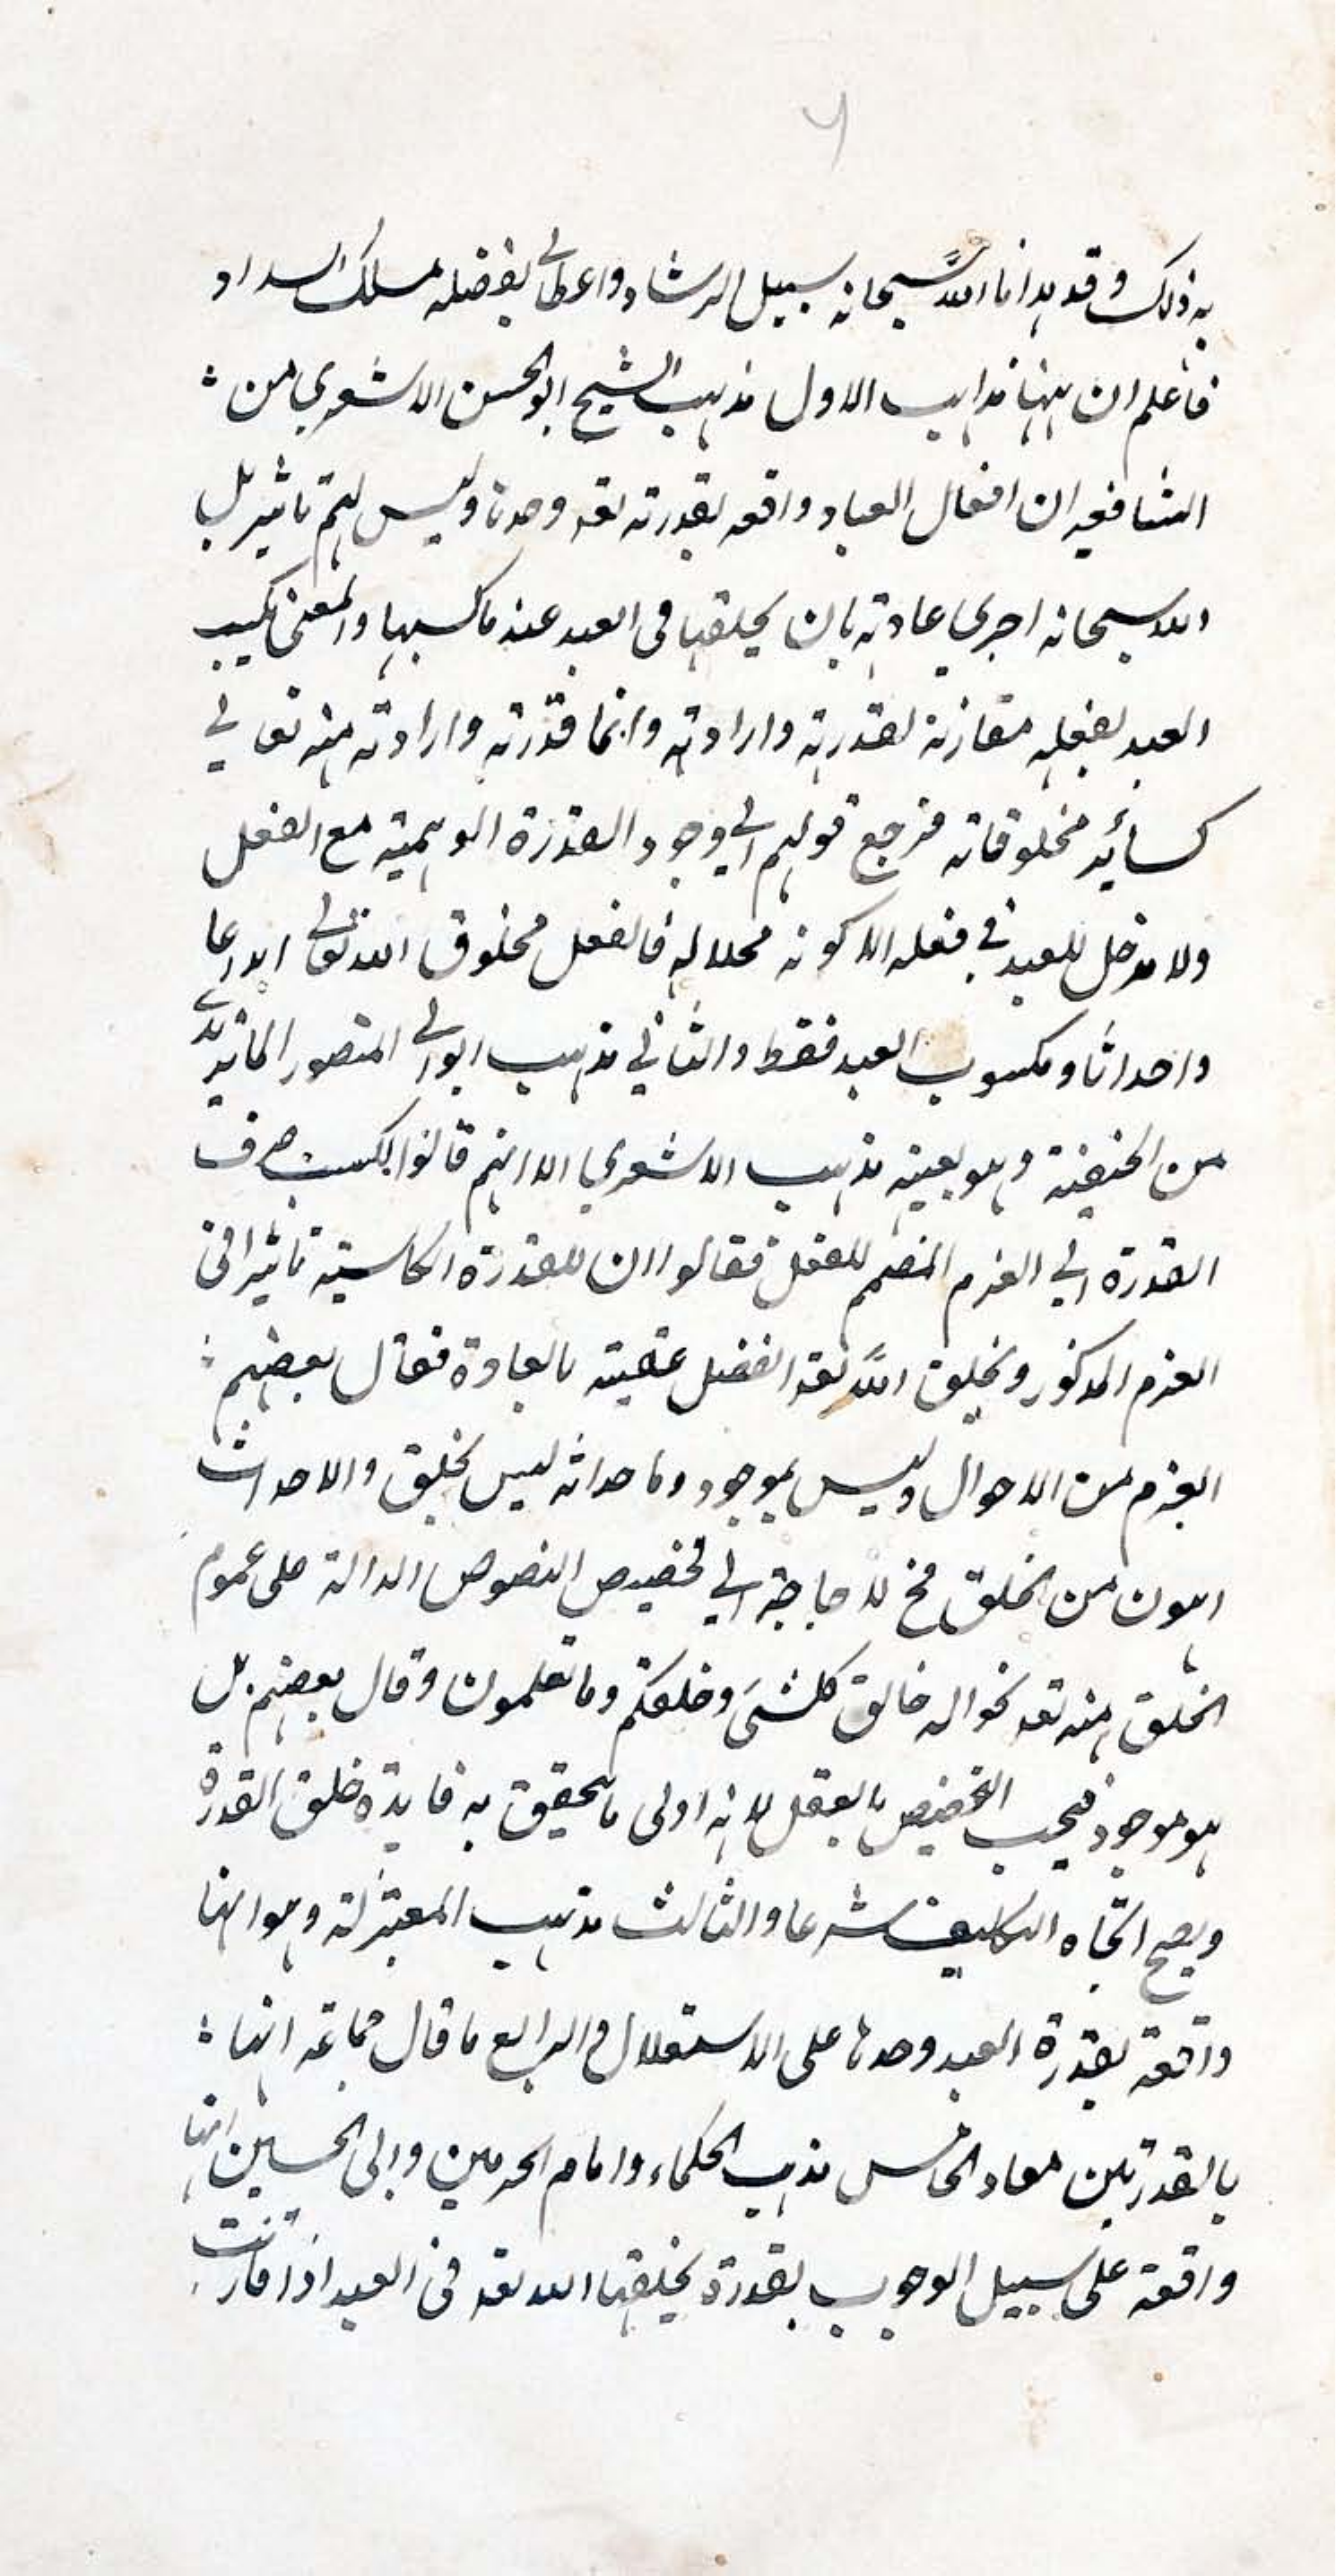 به ذلك وقد هدانا الله سبحانه سبيل الرشاد واعطالي بفضله مسلك السداد
فاعلم ان ههنا مذاهب الاول مذهب الشيخ ابو الحسن الاشعري من
الشافعيه ان افعال العباد واقعه بقدرته تعہ وحدها وليس لهم تاثير بل
الله سبحانه اجري عادته بان يخلقها فى العبد عند ما كسبها والمعنى بكسب
العبد لفعله مقارنة لقدرته وارادته وانما قدرته وارادته منه تعالي
كسائر مخلوقاته فرجع قولهم الي وجود القدرة الوهمية مع الفعل
ولا مدخل للعبد في فعله الا كونه محلا له فالفعل مخلوق الله تعالي ابداعا
واحداثا ومكسوب العبد فقط والثاني مذهب ابوالي المنصور الماتريدي
من الحنيفية وهو بعينه مذهب الاشعري الا انهم قالوا الكسب صرف
القدرة الي العزم المصمم للفعل فقالوا ان للقدرة الكاسبة تاثيرا فى
العزم المذكور ويخلق الله تعہ الفعل عقيبه بالعادة فقال بعضهم
العزم من الاحوال وليس بموجود وما حداثه ليس بخلق والاحداث
اهون من الخلق فح لا حاجة الي تخصيص النصوص الدالة على عموم
الخلق منه تعہ نحو اله خالق كلشئ وخلقكم وما تعلمون وقال بعضهم بل
هو موجود فيجب التخصيص بالعقل لانه اولى ما يتحقق به فايدة خلق القدرة
ويصح اتجاه التكليف شرعا والثالث مذهب المعتزلة وهو انها
واقعة بقدرة العبد وحدها على الاستقلال والرابع ما قال جماعه انها
بالقدرتين معاد الخامس مذهب الحكماء وامام الحرمين وابى الحسين انها
واقعة على سبيل الوجوب بقدرة يخلقها الله تعہ فى العبد اذا قارنت